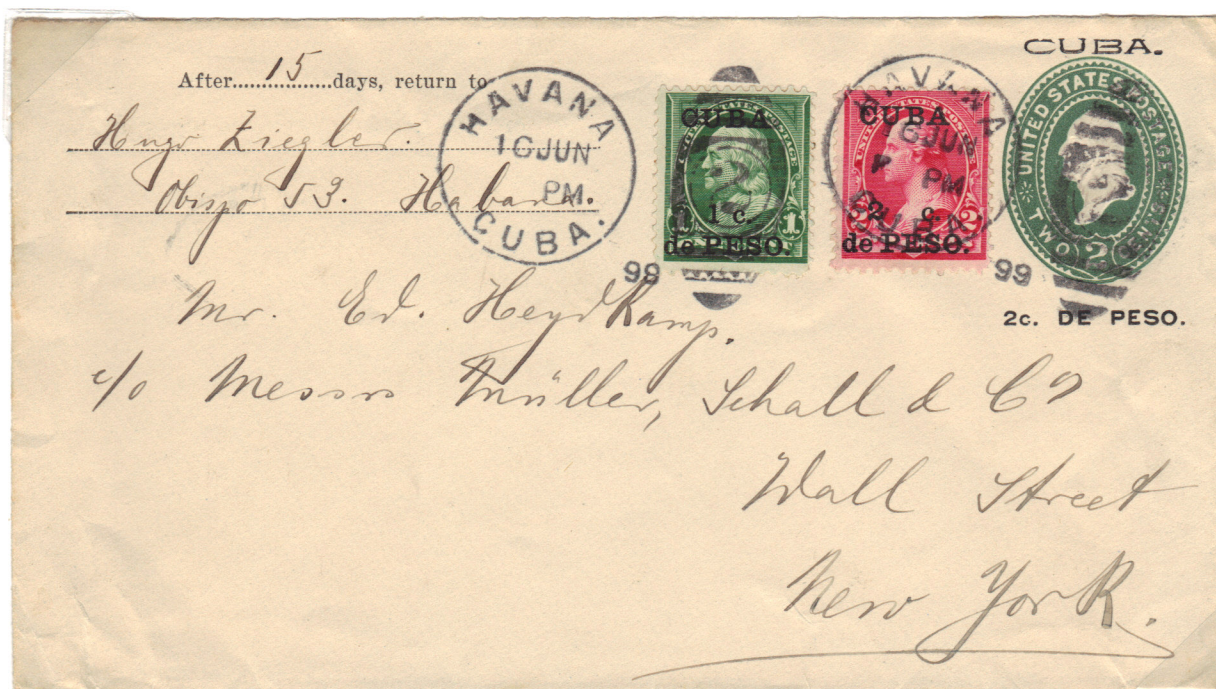 CUBA.
After 15 days, return to
Hugo Ziegler.
Obispo 53. Habana.
HAVANA
16 JUN
PM.
CUBA.
99
CUBA
1
1 c.
1
de PESO.
HAVANA
16 JUN
PM
CUBA
99
UNITED STATES POSTAGE
CUBA
2 c. 2
de PESO.
UNITED STATES POSTAGE
TWO 2 CENTS
2c. DE PESO.
Mr. Ed. Heydkamp.
c/o Messrs Müller, Schall & Co
Wall Street
New York.